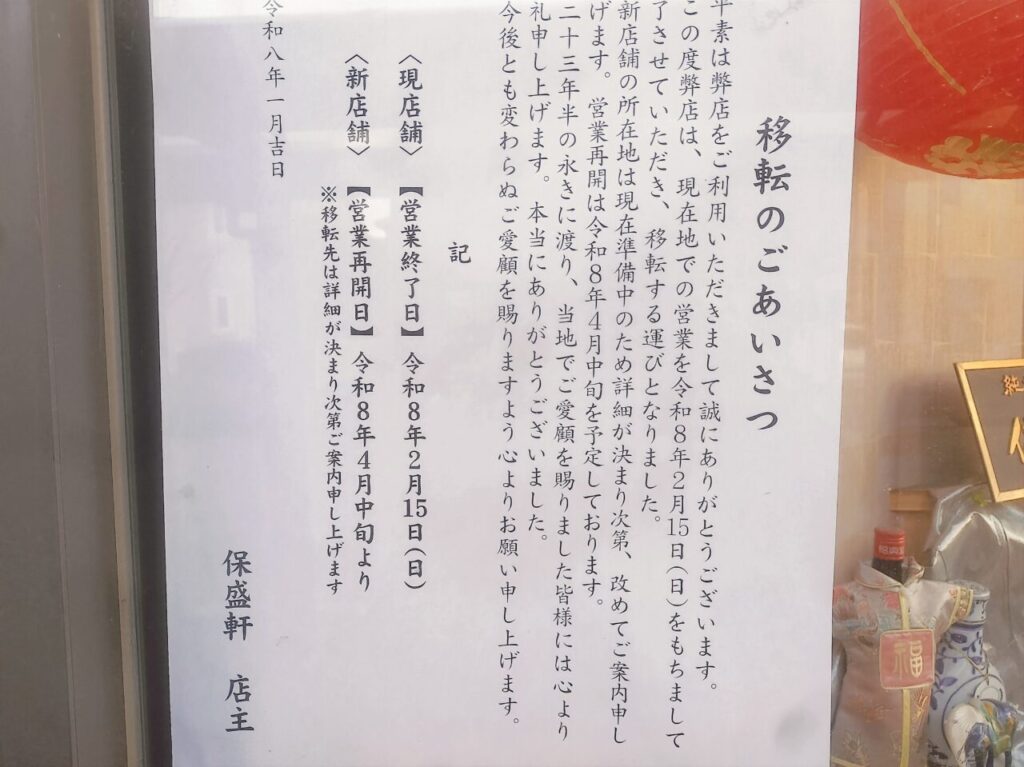 移転のごあいさつ
平素は弊店をご利用いただきまして誠にありがとうございます。
この度弊店は、現在地での営業を令和８年２月15日(日)をもちまして
了させていただき、移転する運びとなりました。
新店舗の所在地は現在準備中のため詳細が決まり次第、改めてご案内申し
げます。営業再開は令和８年４月中旬を予定しております。
二十三年半の永きに渡り、当地でご愛顧を賜りました皆様には心より
礼申し上げます。本当にありがとうございました。
今後とも変わらぬご愛顧を賜りますよう心よりお願い申し上げます。
記
〈現店舗〉【営業終了日】令和８年２月15日(日)
〈新店舗〉【営業再開日】令和８年４月中旬より
※移転先は詳細が決まり次第ご案内申し上げます
令和八年一月吉日
保盛軒 店主
福
純